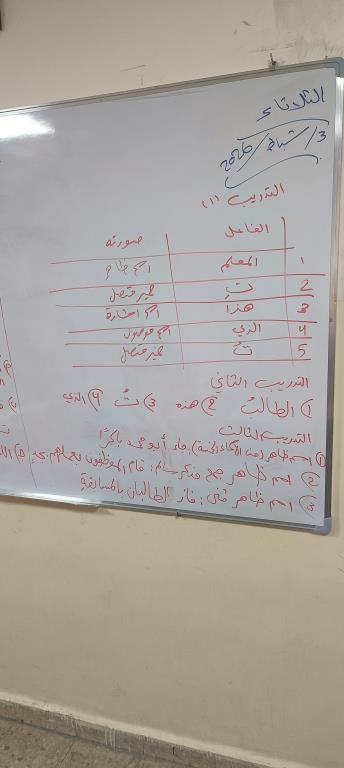 الثلاثاء
3/شباط/2026
التدريب (1)
الفاعل صورته
1 المعلم اسم ظاهر
2 تِ ضمير متصل
3 هذا اسم اشارة
4 الذي اسم موصول
5 تُ ضمير متصل
التدريب الثاني
1 الطالبُ 2 هذه 3 تُ 4 الذي
التدريب الثالث
1 اسم ظاهر (من الأسماء الخمسة): جاء أبو محمد باكرًا
2 اسم ظاهر جمع مذكر سالم: قام الموظفون
3 اسم ظاهر مثنى: فاز الطالبان بالمسابقة